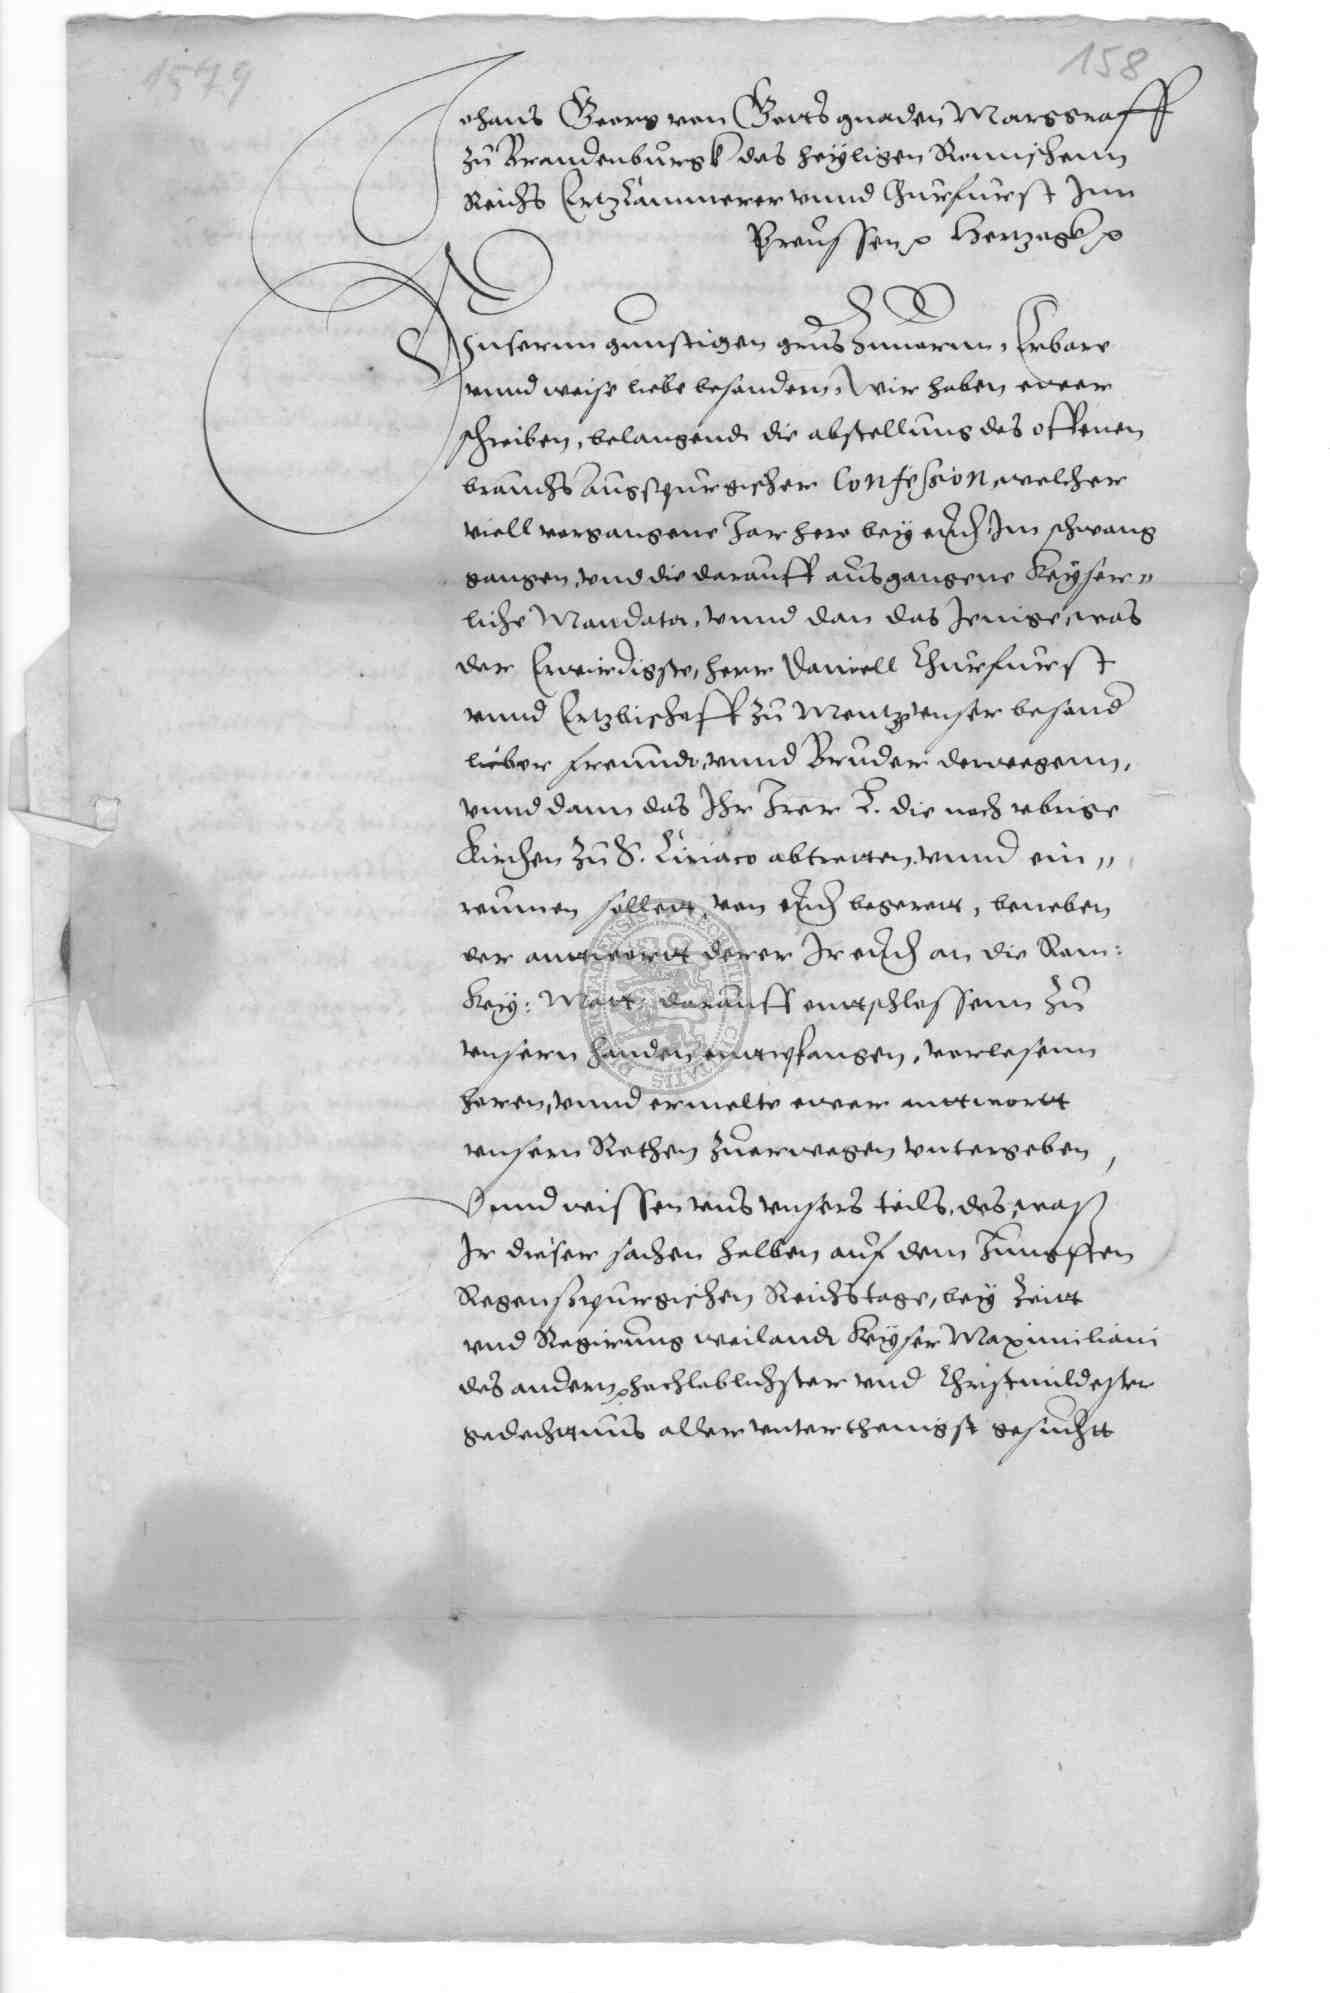 1579
158
Johans Georg von Gotts gnaden Marggraff
zu Brandenburgk des heyligen Romischenn
Reichs Ertzkammerer unnd Churfurst Inn
Preussen p Hertzogk p
Unsernn gunstigen grus zuuornn, Erbare
unnd weise liebe besondern, Wir haben ewer
schreiben, belangende die abstellung des offenen
brauchs Augspurgischer Confession, welcher
viell vergangene Jar hero bey euch Im schwang
gangen, und die darauff ausgangene Keyser„
liche Mandata, unnd dan das Jenige, was
der Erwirdigste, herr Daniell Churfurst
unnd Ertzbischoff zu Mentz unser besond
lieber freundt, unnd Bruder derwegenn,
unnd dann das Ihr Irer L. die noch ubrige
Kirchen zu S. Ciriaco abtretten, unnd ein„
reumen sollett, von euch begerett, beneben
der anttwortt derer Ir euch an die Rom:
Key: Matt: darauff entschlossenn zu
unsern handen enttpfangen, verlesenn
horen, unnd ermelte ewer anttwortt
unsern Rethen zuerwegen untergeben,
Unnd wissen uns unsers teils, des, waß
Ir dieser sachen halben auf dem Jungsten
Regenspurgischen Reichstage, bey Zeitt
und Regirung weilandt Keyser Maximiliani
des andern, hochloblichster und Christmildester
gedechttnus aller unterthenigst gesuchtt